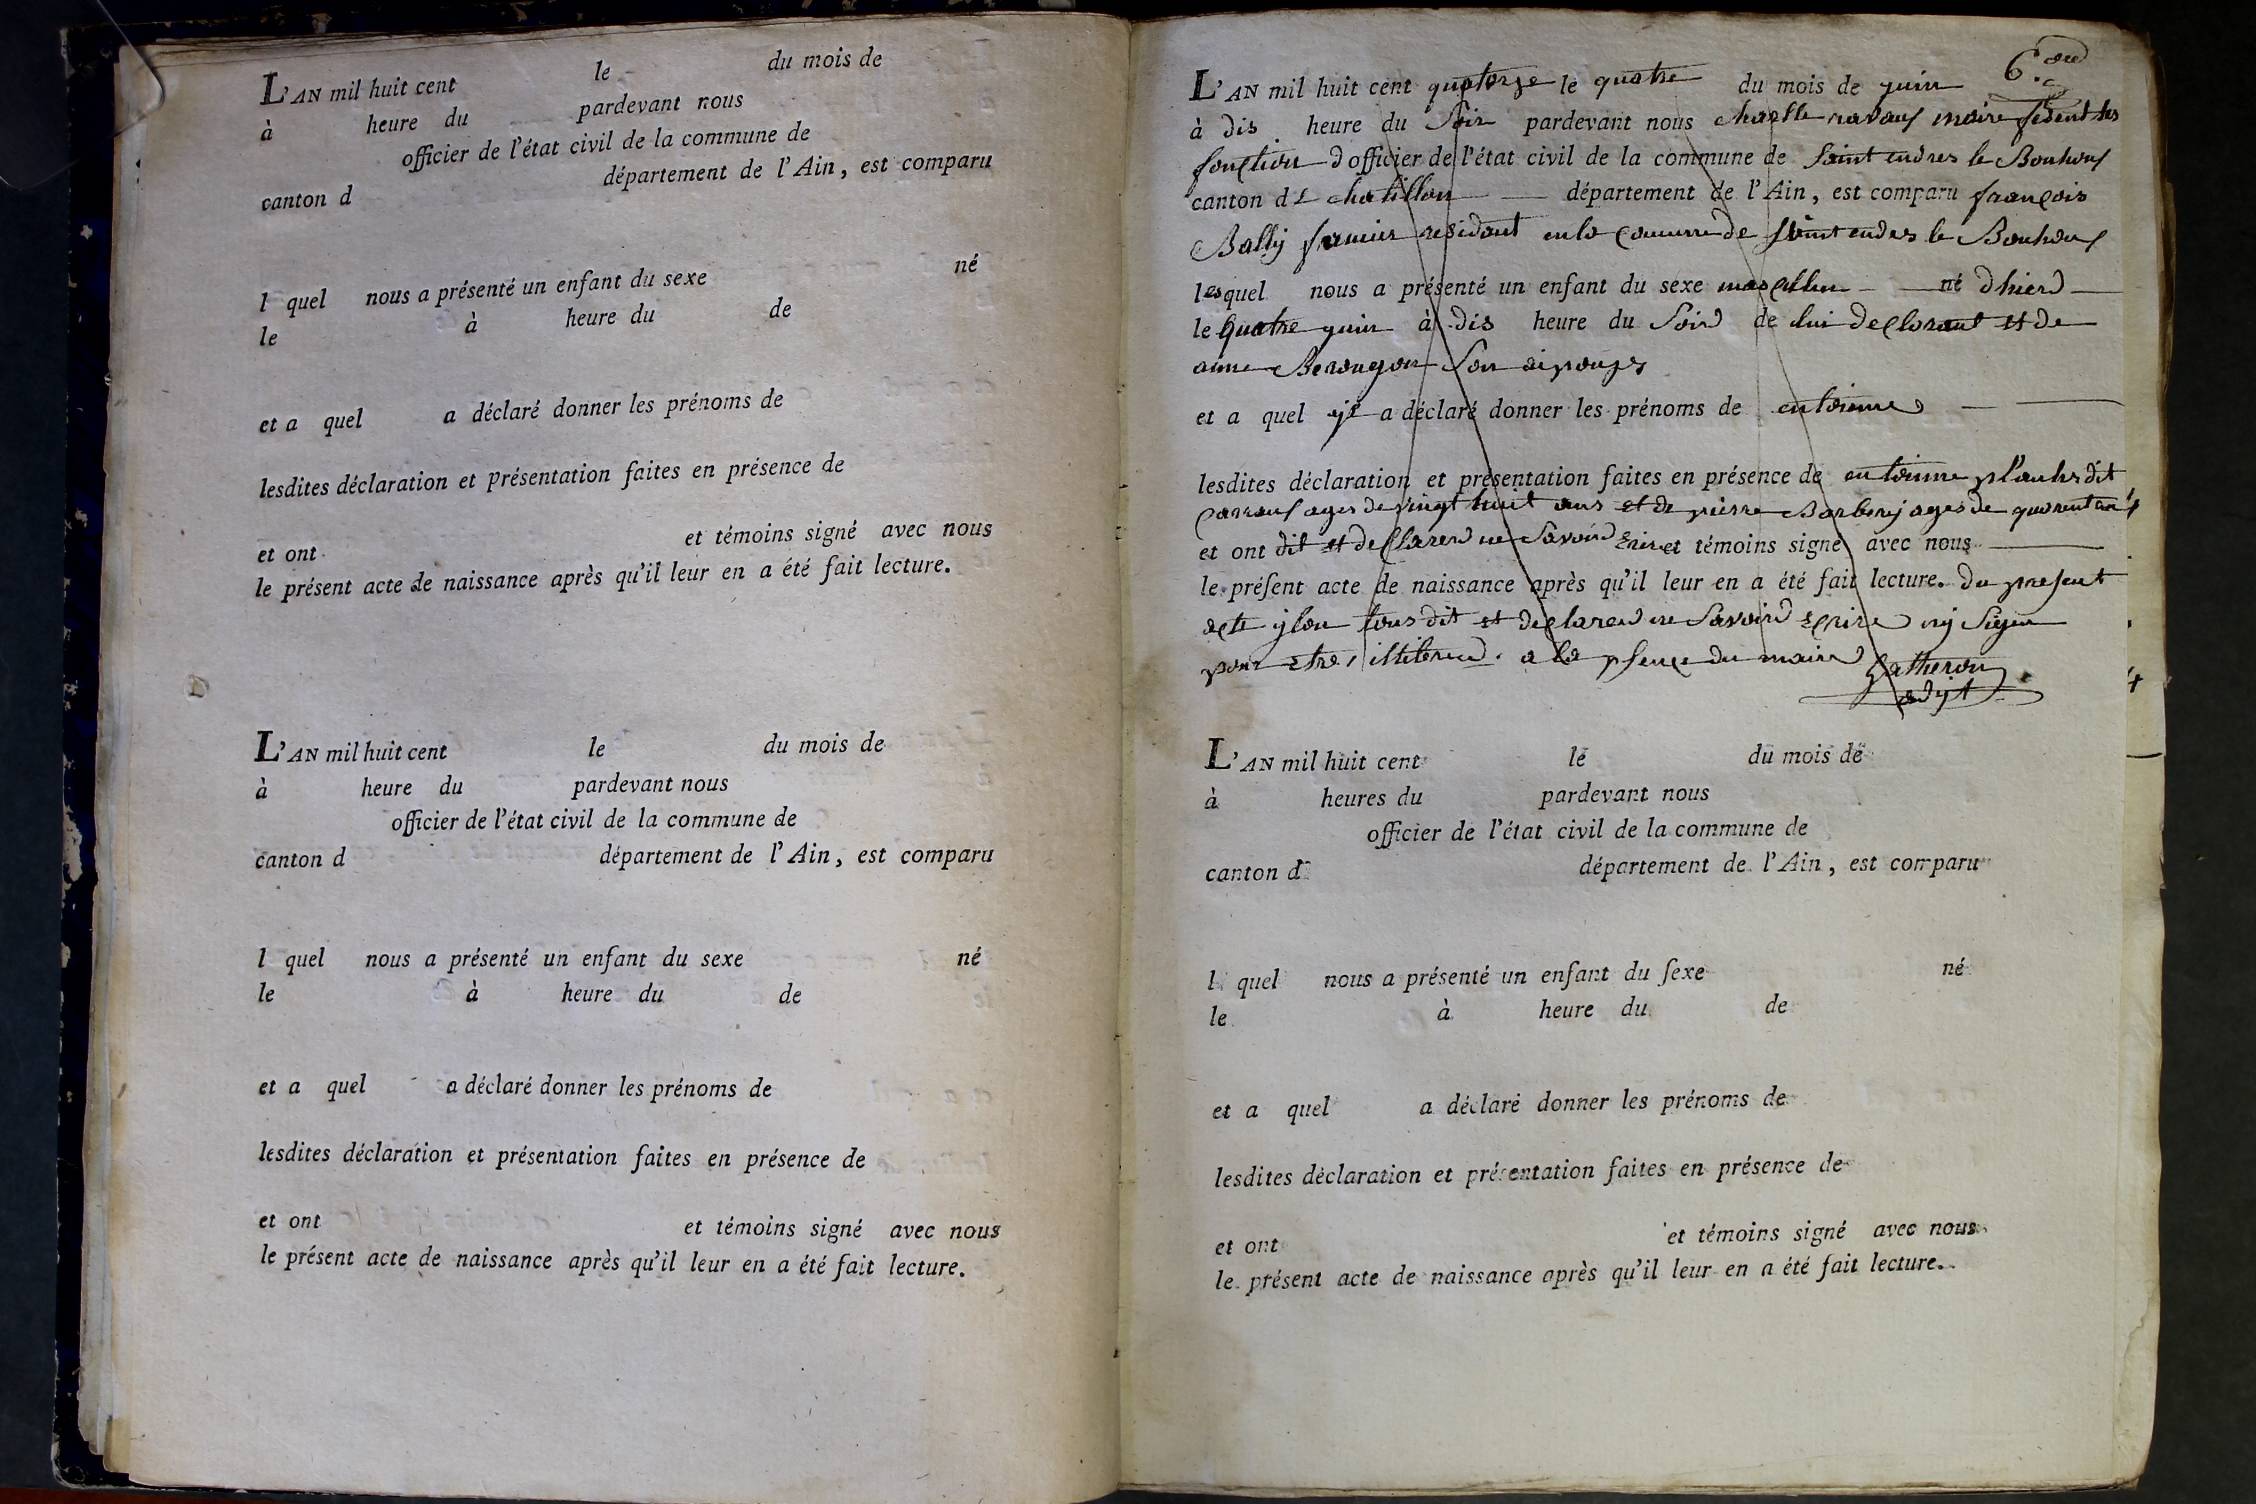 L'AN mil huit cent le du mois de
à heure du pardevant nous
officier de l'état civil de la commune de
canton d département de l'Ain, est comparu
l quel nous a présenté un enfant du sexe né
le à heure du de
et a quel a déclaré donner les prénoms de
lesdites déclaration et présentation faites en présence de
et ont et témoins signé avec nous
le présent acte de naissance après qu'il leur en a été fait lecture.
L'AN mil huit cent le du mois de
à heure du pardevant nous
officier de l'état civil de la commune de
canton d département de l'Ain, est comparu
l quel nous a présenté un enfant du sexe né
le à heure du de
et a quel a déclaré donner les prénoms de
lesdites déclaration et présentation faites en présence de
et ont et témoins signé avec nous
le présent acte de naissance après qu'il leur en a été fait lecture.
L'AN mil huit cent quatorze le quatre du mois de juin
à dis heure du soir pardevant nous maire
fonction d officier de l'état civil de la commune de saint endres le Bouhouf
canton de chatillon département de l'Ain, est comparu françois
Bally residant en la de saint endres le Bouhouf
lesquel nous a présenté un enfant du sexe né d hierd
le quatre juin à dis heure du soird de lui declorant et de
anne son
et a quel yl a déclaré donner les prénoms de entoinne
lesdites déclaration et présentation faites en présence de entoinne dit
ages de vingt huit ans et de pierre ages de
et ont dit et declarerd ne savoird et témoins signé avec nous
le présent acte de naissance après qu'il leur en a été fait lecture. du present
acte tous dit et declarerd ne savoird ecrire ny signer
pour etre a la du maire
adjt
L'AN mil huit cent le du mois de
à heures du pardevant nous
officier de l'état civil de la commune de
canton d département de l'Ain, est comparu
l quel nous a présenté un enfant du sexe né
le à heure du de
et a quel a déclaré donner les prénoms de
lesdites déclaration et présentation faites en présence de
et ont et témoins signé avec nous
le présent acte de naissance après qu'il leur en a été fait lecture.